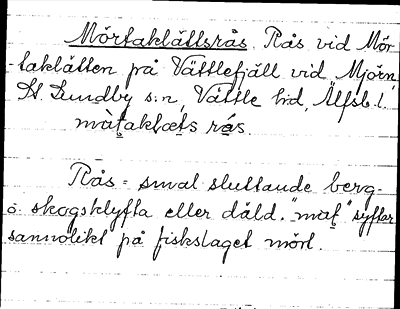 Mörtaklåttsrås, Rås vid Mör-
taklåtten på Vättlefjäll vid Mjörn,
St. Lundby s:n, Vättle hd, Älfsb. l.
màtaklæts rás.
Rås = smal sluttande berg-
o. skogsklyfta eller däld. "mat" syftar
sannolikt på fiskslaget mört.